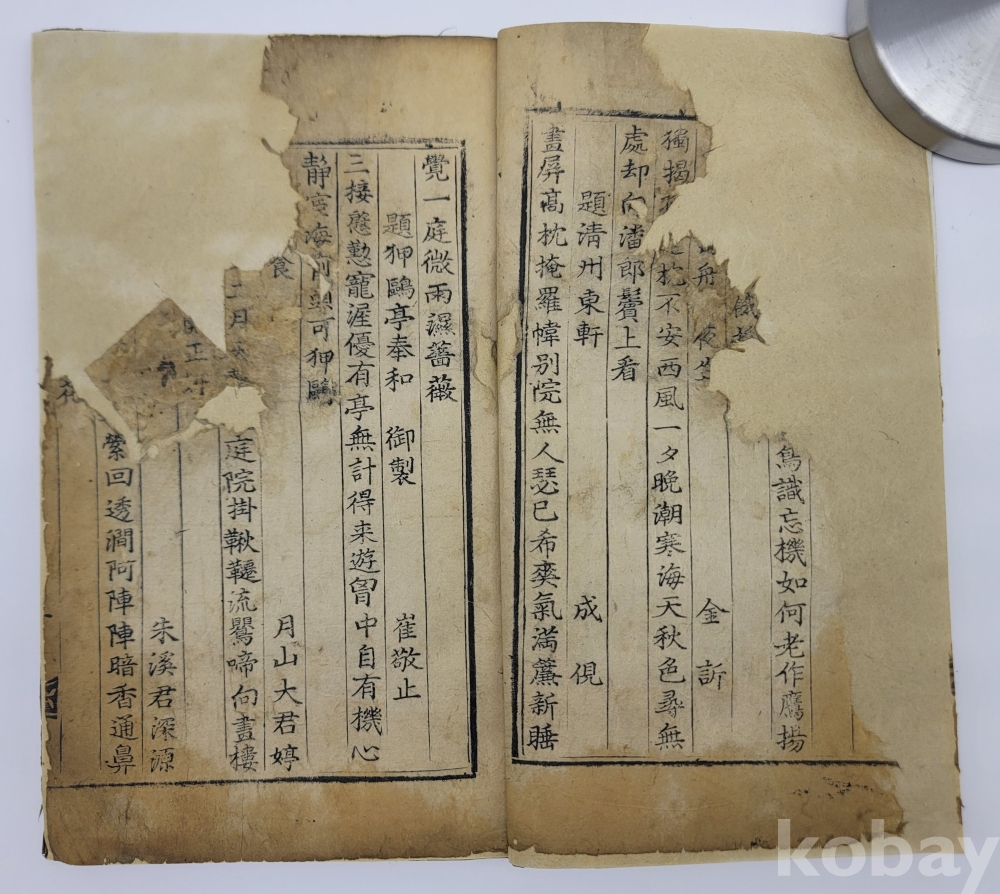 鳥識忘機如何老作鷹揚
舟夜 金訢
獨揭 枕不安西風一夕晩潮寒海天秋色尋無
處却向潘郎鬢上看
題清州東軒 成俔
畫屏高枕掩羅幃別院無人瑟已希爽氣滿簾新睡
覺一庭微雨濕薔薇
題狎鷗亭奉和 御製 崔敬止
三接慇懃寵渥優有亭無計得来游胷中自有機心
靜宦海前頭可狎鷗
食 月山大君婷
二月 庭院掛鞦韆流鸎啼向畫樓
朱溪君深源
縈回透澗阿陣陣暗香通鼻
花
kobay